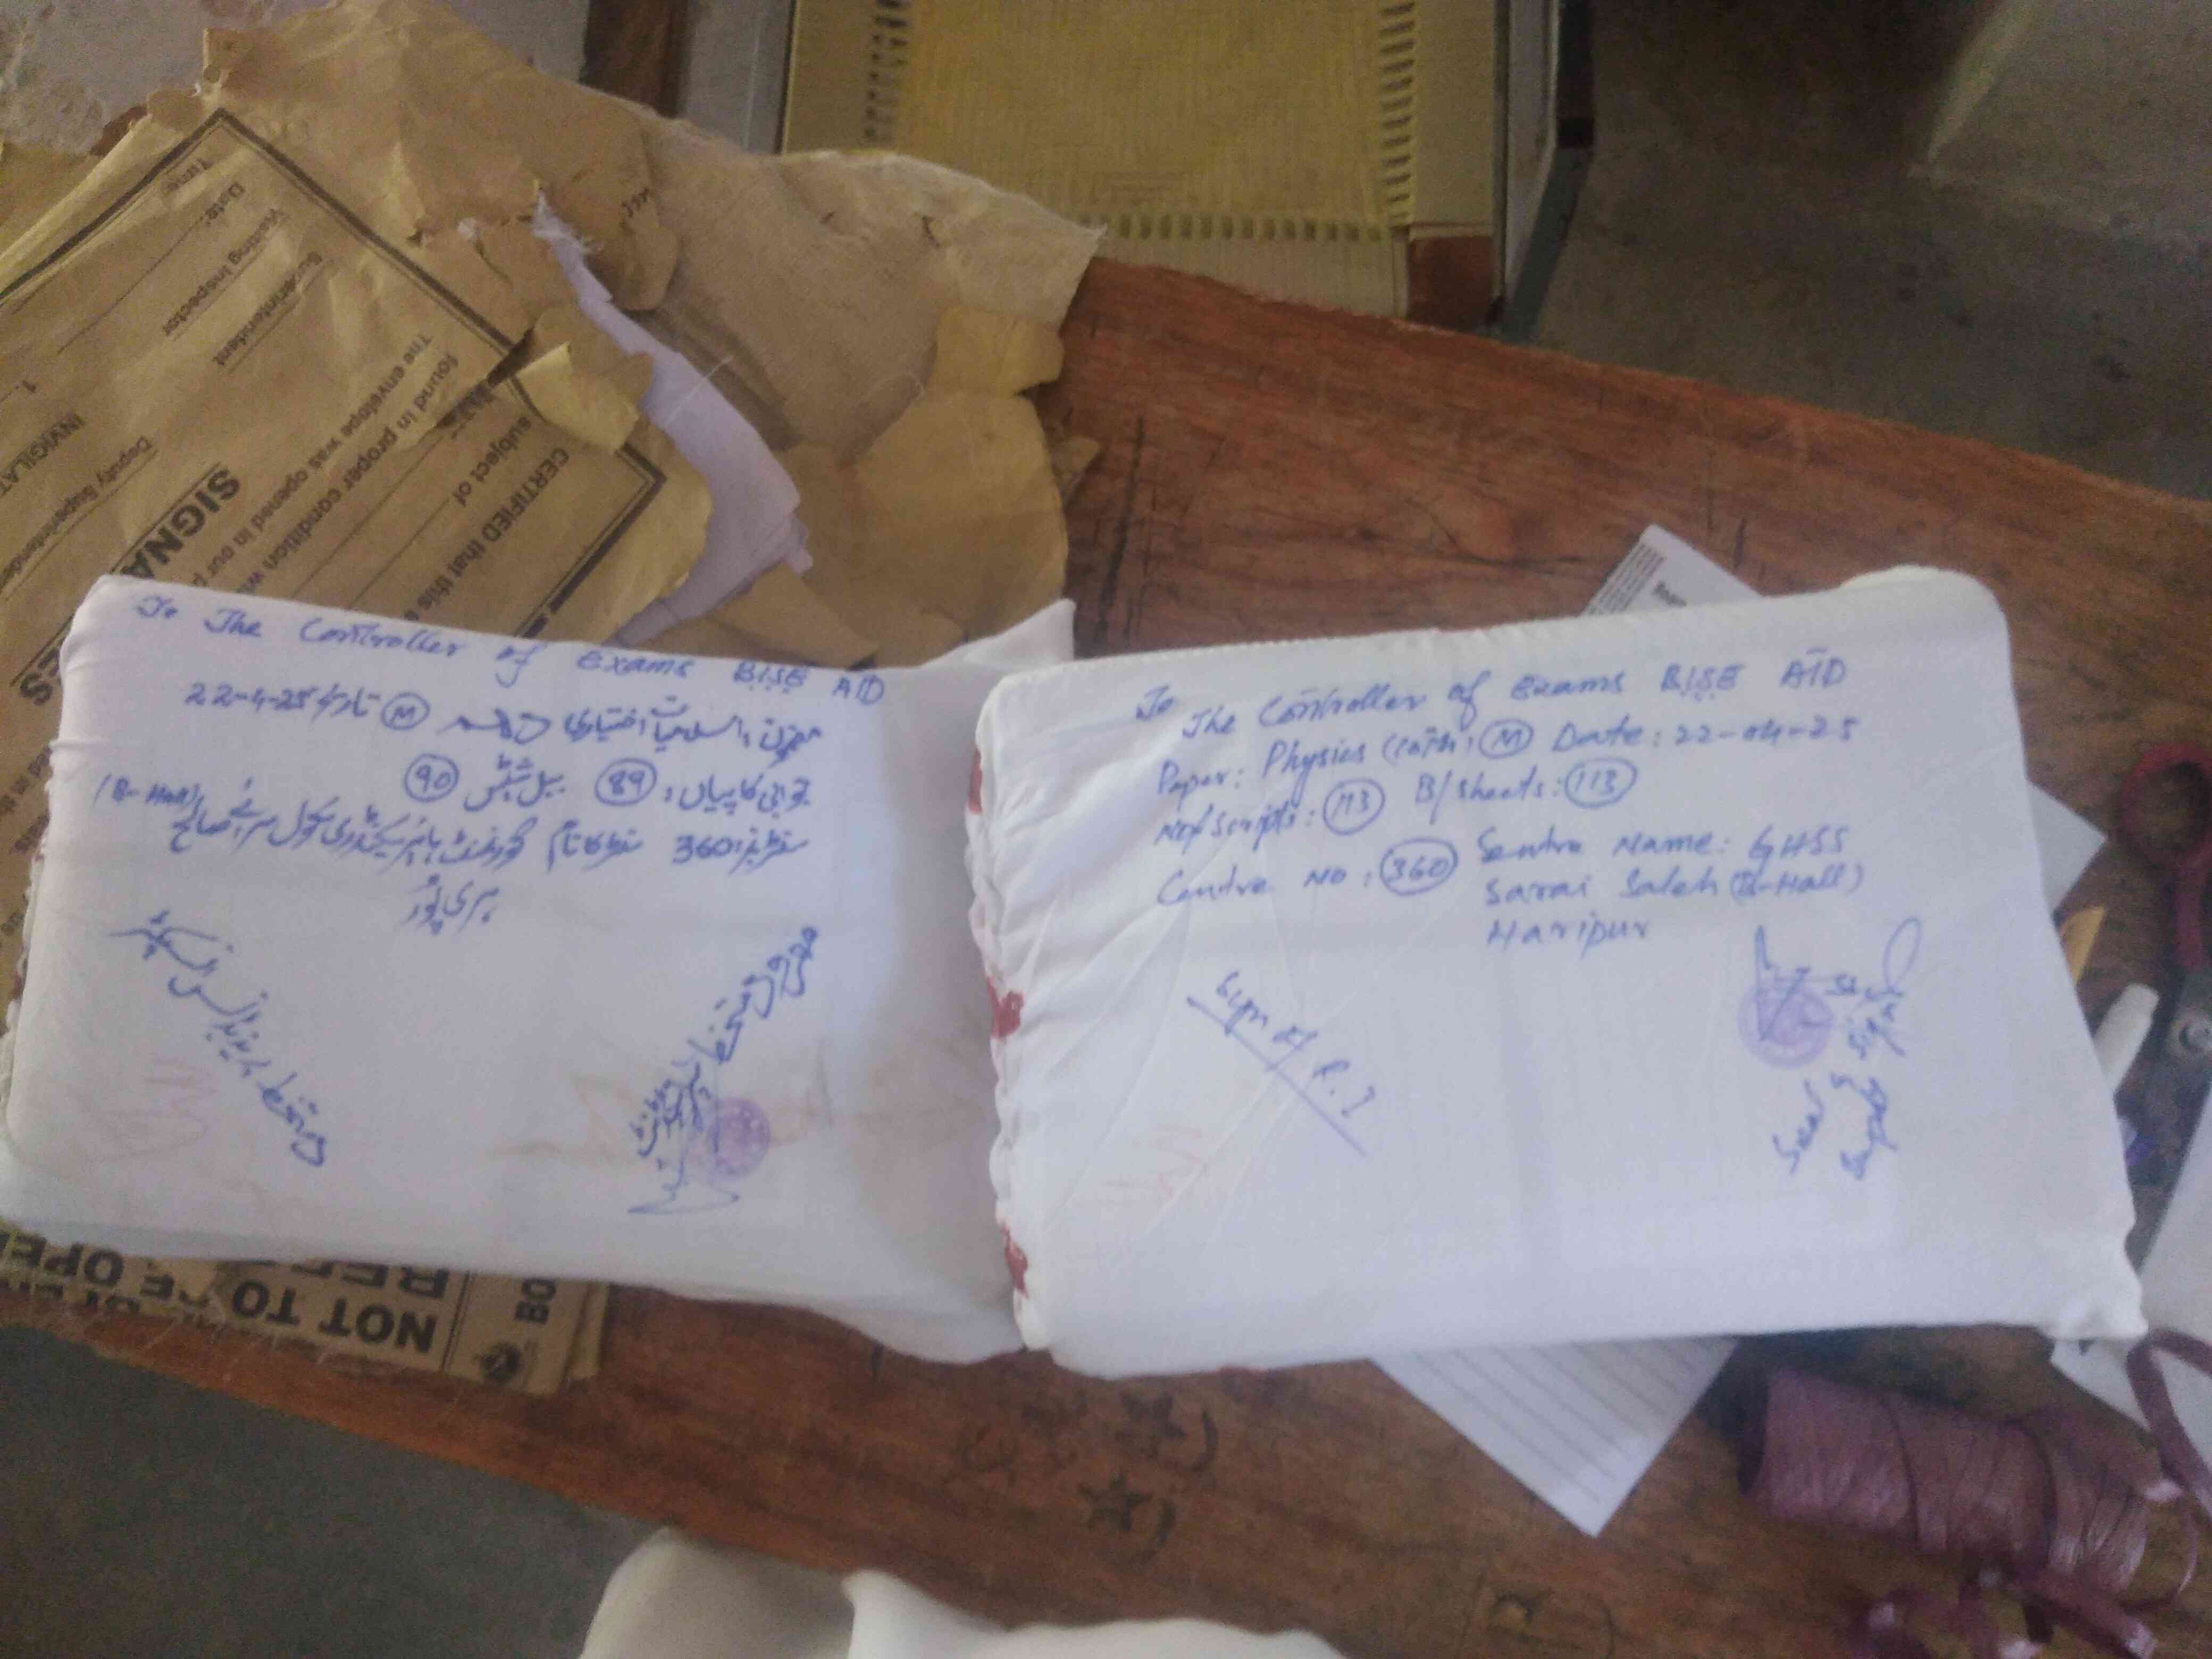 To The Controller of Exams BISE ATD
مضمون: اسلامیات اختیاری دہم Ⓜ تاریخ 22-4-25
جوابی کاپیاں: 89 بیل شیٹس 90
سنٹر نمبر: 360 سنٹر کا نام گورنمنٹ ہائیر سیکنڈری سکول سرائے صالح (B-Hall)
ہری پور
دستخط ریذیڈنس انسپکٹر
مہر و دستخط سپرنٹنڈنٹ
To
The Controller of Exams BISE ATD
Paper: Physics (10th) Ⓜ Date: 22-04-25
No/Scripts: 113 B/Sheets: 113
Centre No: 360 Sentre Name: GHSS
Sarai Saleh (B-Hall)
Haripur
Sign of R.I
Seal & Sign
Supdt
Time
Date:
Visiting Inspector
Superintendent
Deputy Superintendent
1.
INVIGILAT
SIGNA
The envelope was opened in our
found in proper condition
subject of
CERTIFIED that this
ES
NOT TO BE OPE
BO